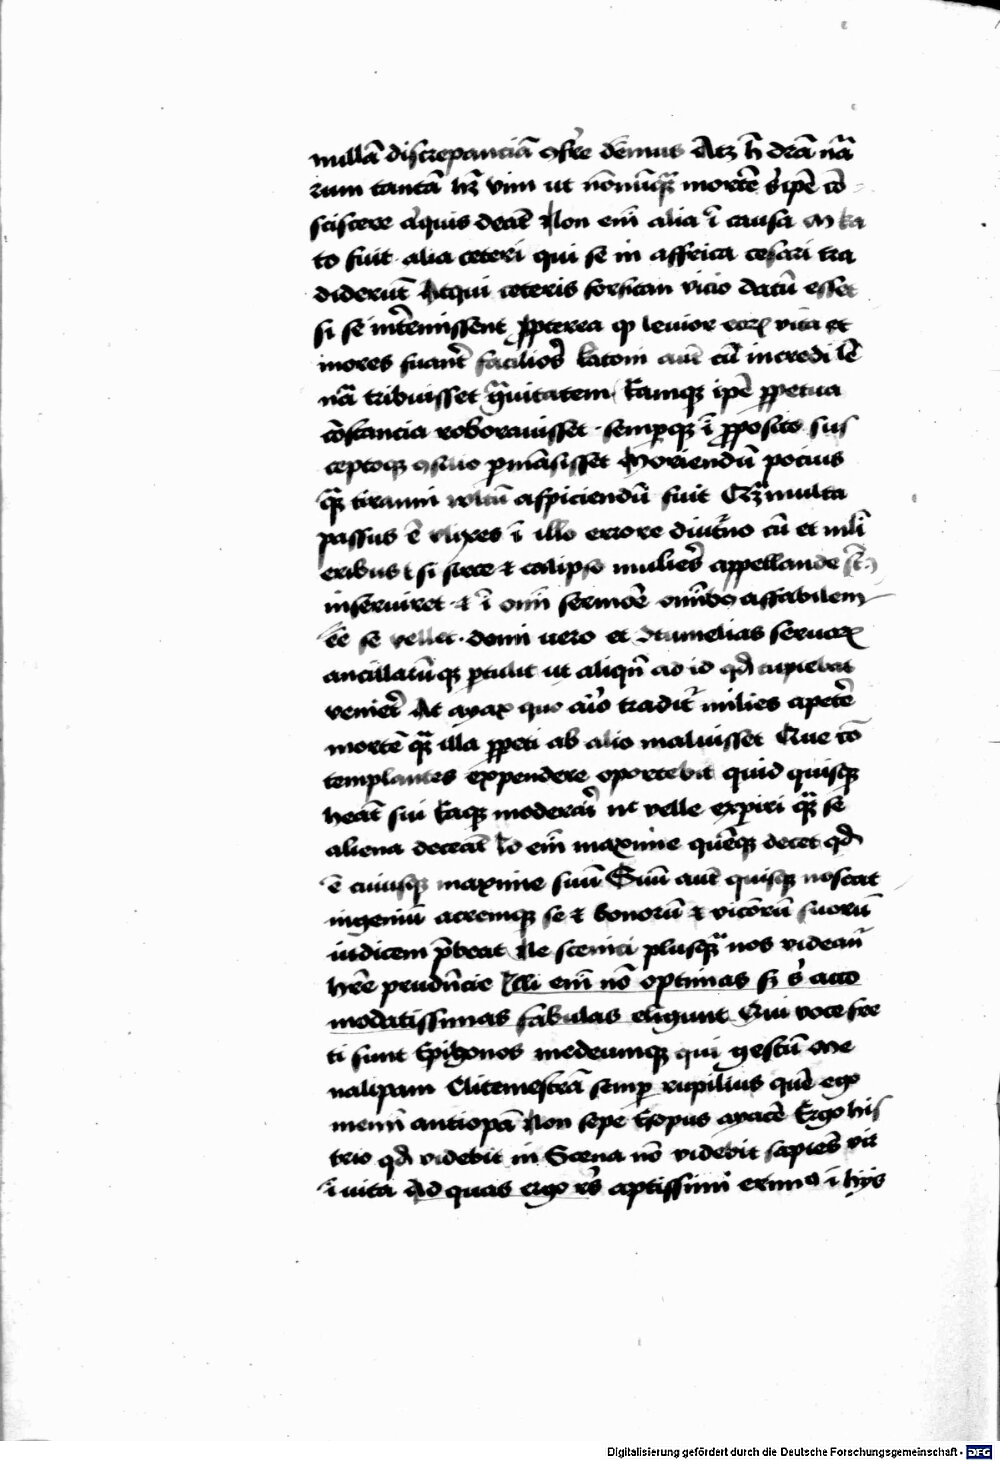 nullā discrepanciā ꝯferre debemus Atqꝫ h̄ dr̄ām nām
rum tantā hꝫ vim ut nōnūqꝫ mortē sibi ipē cō
sciscere aliquis debeat Non enī alia ī causa M ka
to fuit alia ceteri qui se in affrica cesari tra
diderūt Atqui ceteris forsitan vicio datū esset
si se intēmissent ꝓpterea qꝫ levior eorꝫ vita et
mores fuerant faciliores Katoni autē cū incredi lē
nā tribuisset gͣuitatem Eamqꝫ ipē ꝑpetua
cōstancia roborauisset semperqꝫ ī ꝓposito sus
ceptoqꝫ ꝯsilio ꝑmāsisset Moriendū pocius
qͣꝫ tiranni voltū aspiciendū fuit Qͣꝫ multa
passus ē vlixes ī illo errore diut̓no cū et muli
eribus si circe et calipso mulieres appellande sūt
inseruiret et ī omī sermōe omībꝫ affabilem
eē se vellet domi uero et ꝯtumelias seruorꝫ
ancillarūqꝫ ꝑtulit ut aliqn̄ ad id qd̄ cupiebat
veniret At ayax quo aīo tradit̉ milies apetē
mortē qͣꝫ illa ꝑpeti ab alio maluisset Que cō
templantes expendere oportebit quid quisqꝫ
heat sui Eaqꝫ moderari nec velle experiri qͣꝫ se
aliena deceāt Id enī maxime quēqꝫ decet qd̄
ē cuiusqꝫ maxime suū Suū autē quisqꝫ noscat
ingeniū acremqꝫ se et bonorū et vicōrū suorū
iudicem p̄beat Ne scenici plusqͣꝫ nos videant̉
hēre prudēcie Illi enī nō optimas sꝫ s̓ acco
modatissimas fabulas eligunt Qui voce fre
ti sunt Epigonos medeumqꝫ qui gestū Me
nalipam Clitemestrā semꝑ rupilius quē ego
memī antiopā Non sepe Esopus ayacē Ergo his
trio qd̄ videbit in Scena nō videbit sapiens vir
ī uita Ad quas ergo res aptissimi erimꝰ ī hijs
Digitalisierung gefördert durch die Deutsche Forschungsgemeinschaft - DFG